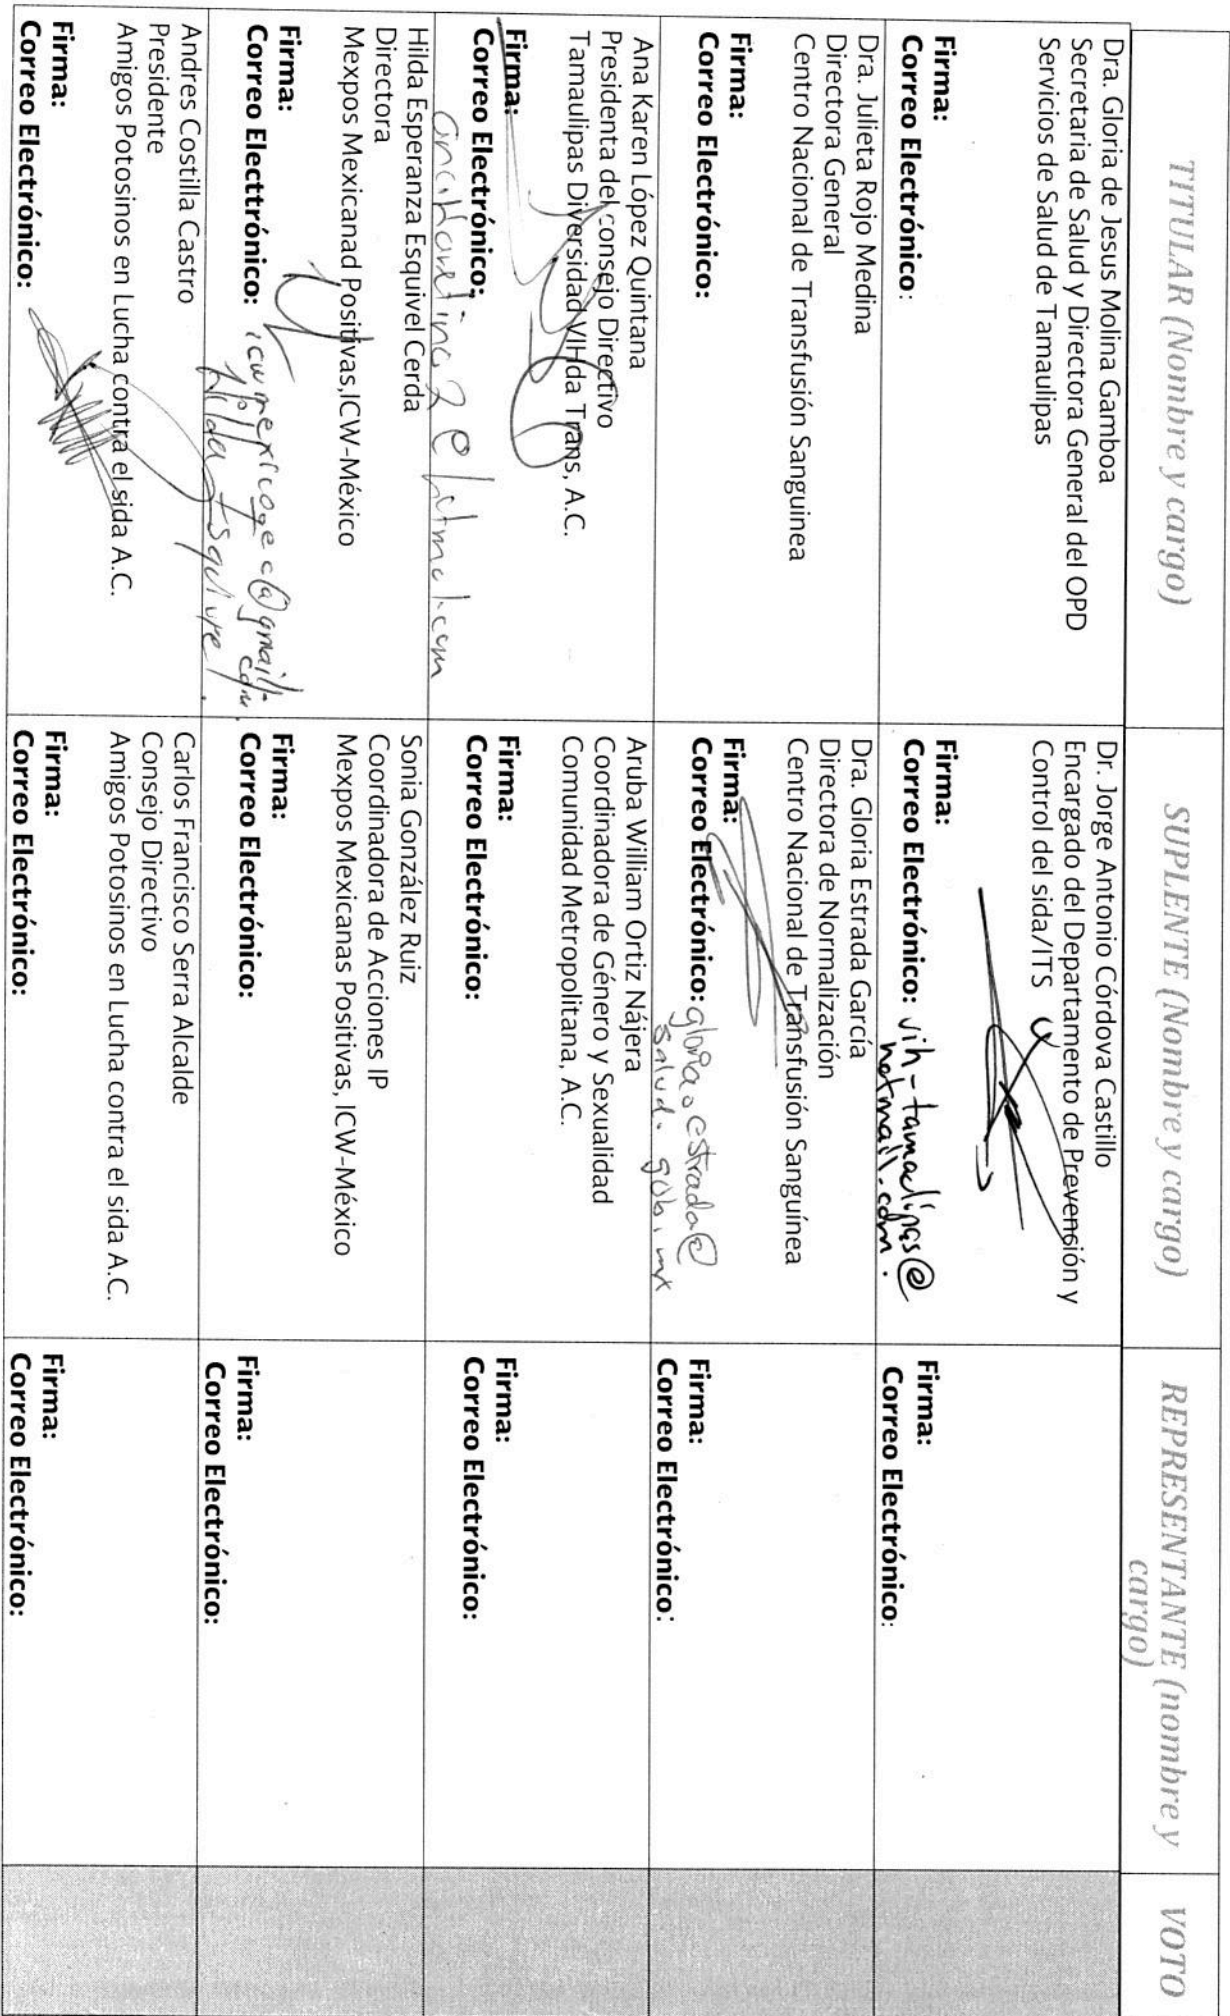 TITULAR (Nombre y cargo)
SUPLENTE (Nombre y cargo)
REPRESENTANTE (nombre y
cargo)
VOTO
Dra. Gloria de Jesus Molina Gamboa
Secretaria de Salud y Directora General del OPD
Servicios de Salud de Tamaulipas
Firma:
Correo Electrónico:
Dr. Jorge Antonio Córdova Castillo
Encargado del Departamento de Prevención y
Control del sida/ITS
Firma:
Correo Electrónico: vih-tamaulipas@
hotmail.com.
Firma:
Correo Electrónico:
Dra. Julieta Rojo Medina
Directora General
Centro Nacional de Transfusión Sanguinea
Firma:
Correo Electrónico:
Dra. Gloria Estrada García
Directora de Normalización
Centro Nacional de Transfusión Sanguínea
Firma:
Correo Electrónico: gloria.estrada@
salud.gob.mx
Firma:
Correo Electrónico:
Ana Karen López Quintana
Presidenta del consejo Directivo
Tamaulipas Diversidad VIHda Trans, A.C.
Firma:
Correo Electrónico:
Aruba William Ortiz Nájera
Coordinadora de Género y Sexualidad
Comunidad Metropolitana, A.C.
Firma:
Correo Electrónico:
Firma:
Correo Electrónico:
Hilda Esperanza Esquivel Cerda
Directora
Mexpos Mexicanad Positivas,ICW-México
Firma:
Correo Electtrónico:
Hilda Esquivel
Sonia González Ruiz
Coordinadora de Acciones IP
Mexpos Mexicanas Positivas, ICW-México
Firma:
Correo Electrónico:
Firma:
Correo Electrónico:
Andres Costilla Castro
Presidente
Amigos Potosinos en Lucha contra el sida A.C.
Firma:
Correo Electrónico:
Carlos Francisco Serra Alcalde
Consejo Directivo
Amigos Potosinos en Lucha contra el sida A.C.
Firma:
Correo Electrónico:
Firma:
Correo Electrónico: